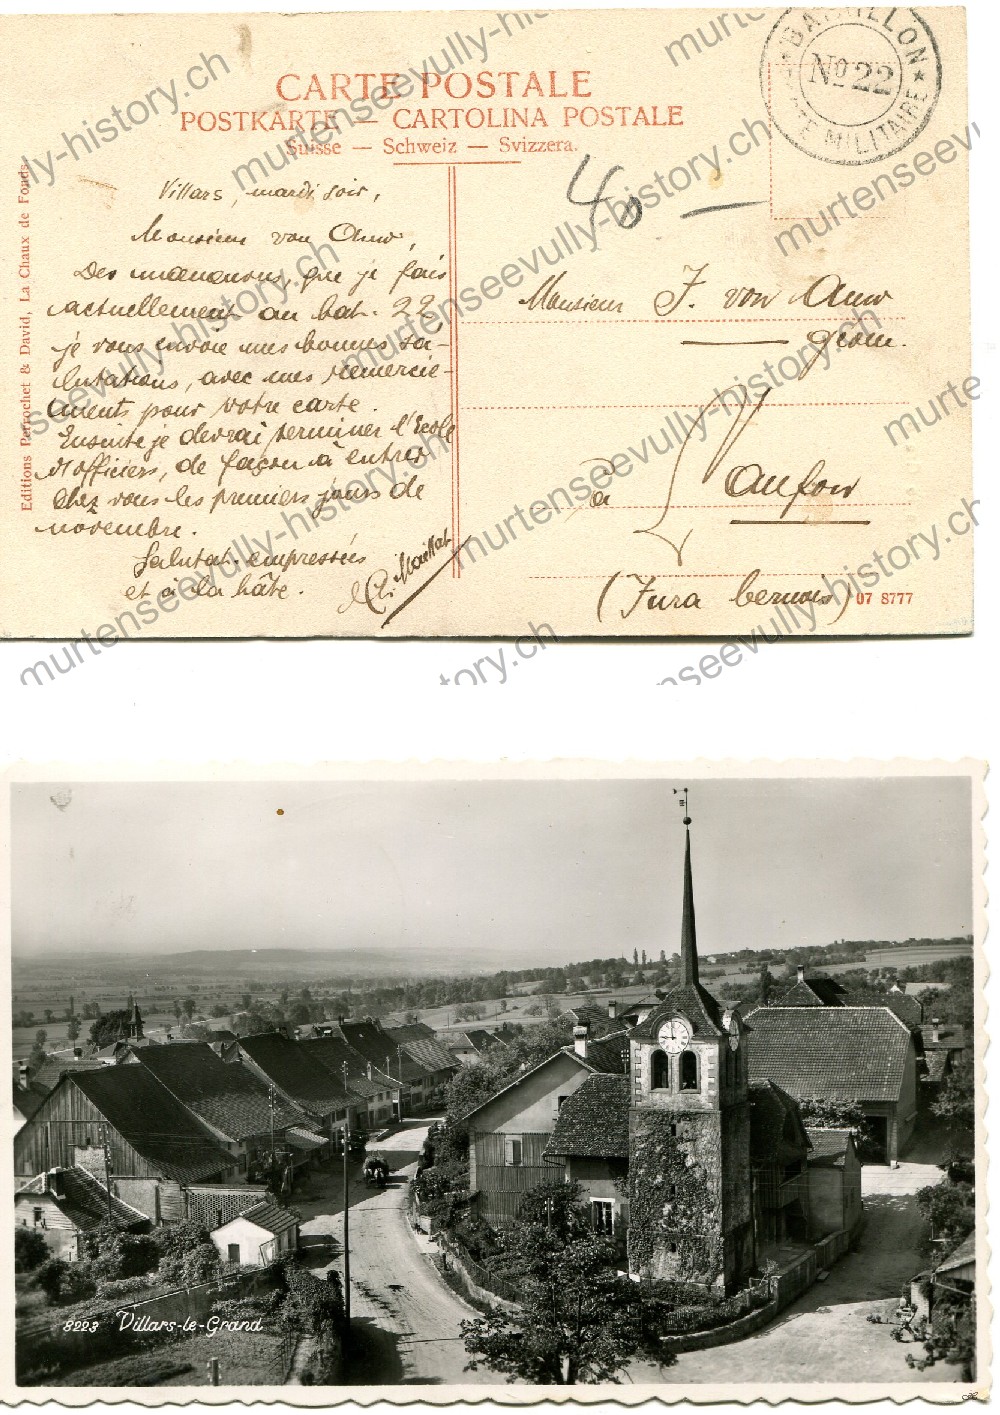 CARTE POSTALE
POSTKARTE — CARTOLINA POSTALE
Suisse — Schweiz — Svizzera.
BATAILLON
No 22
MILITAIRE
40 —
Editions Perrochet & David, La Chaux de Fonds.
Villars, mardi soir,
Monsieur von Auw,
Des manœuvres, que je fais
actuellement au bat. 22,
je vous envoie mes bonnes sa-
lutations, avec mes remercie-
ments pour votre carte.
Ensuite je devrai terminer l'Ecole
d'officiers, de façon à entrer
chez vous les premiers jours de
novembre.
Salutat. empressées
et à la hâte.
Maillat
Monsieur J. von Auw
géom.
à
(Jura bernois)
07 8777
8223 Villars-le-Grand
murtenseevully-history.ch